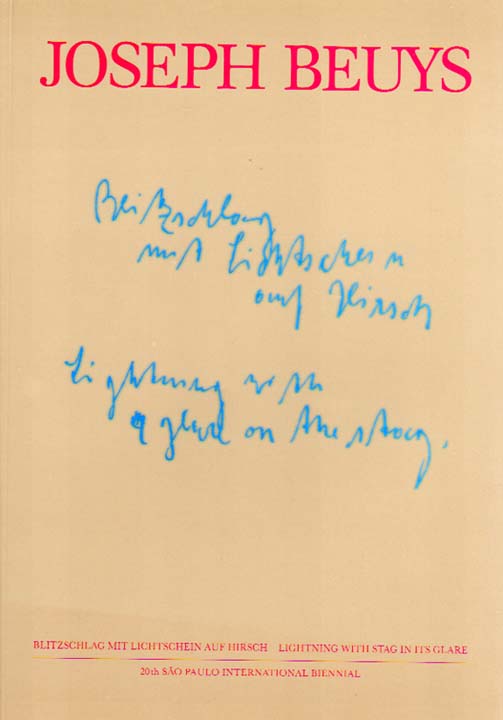 JOSEPH BEUYS
Blitzschlag
mit Lichtschein
auf Hirsch
Lightning with
a glare on the stag.
BLITZSCHLAG MIT LICHTSCHEIN AUF HIRSCH LIGHTNING WITH STAG IN ITS GLARE
20th SÃO PAULO INTERNATIONAL BIENNIAL